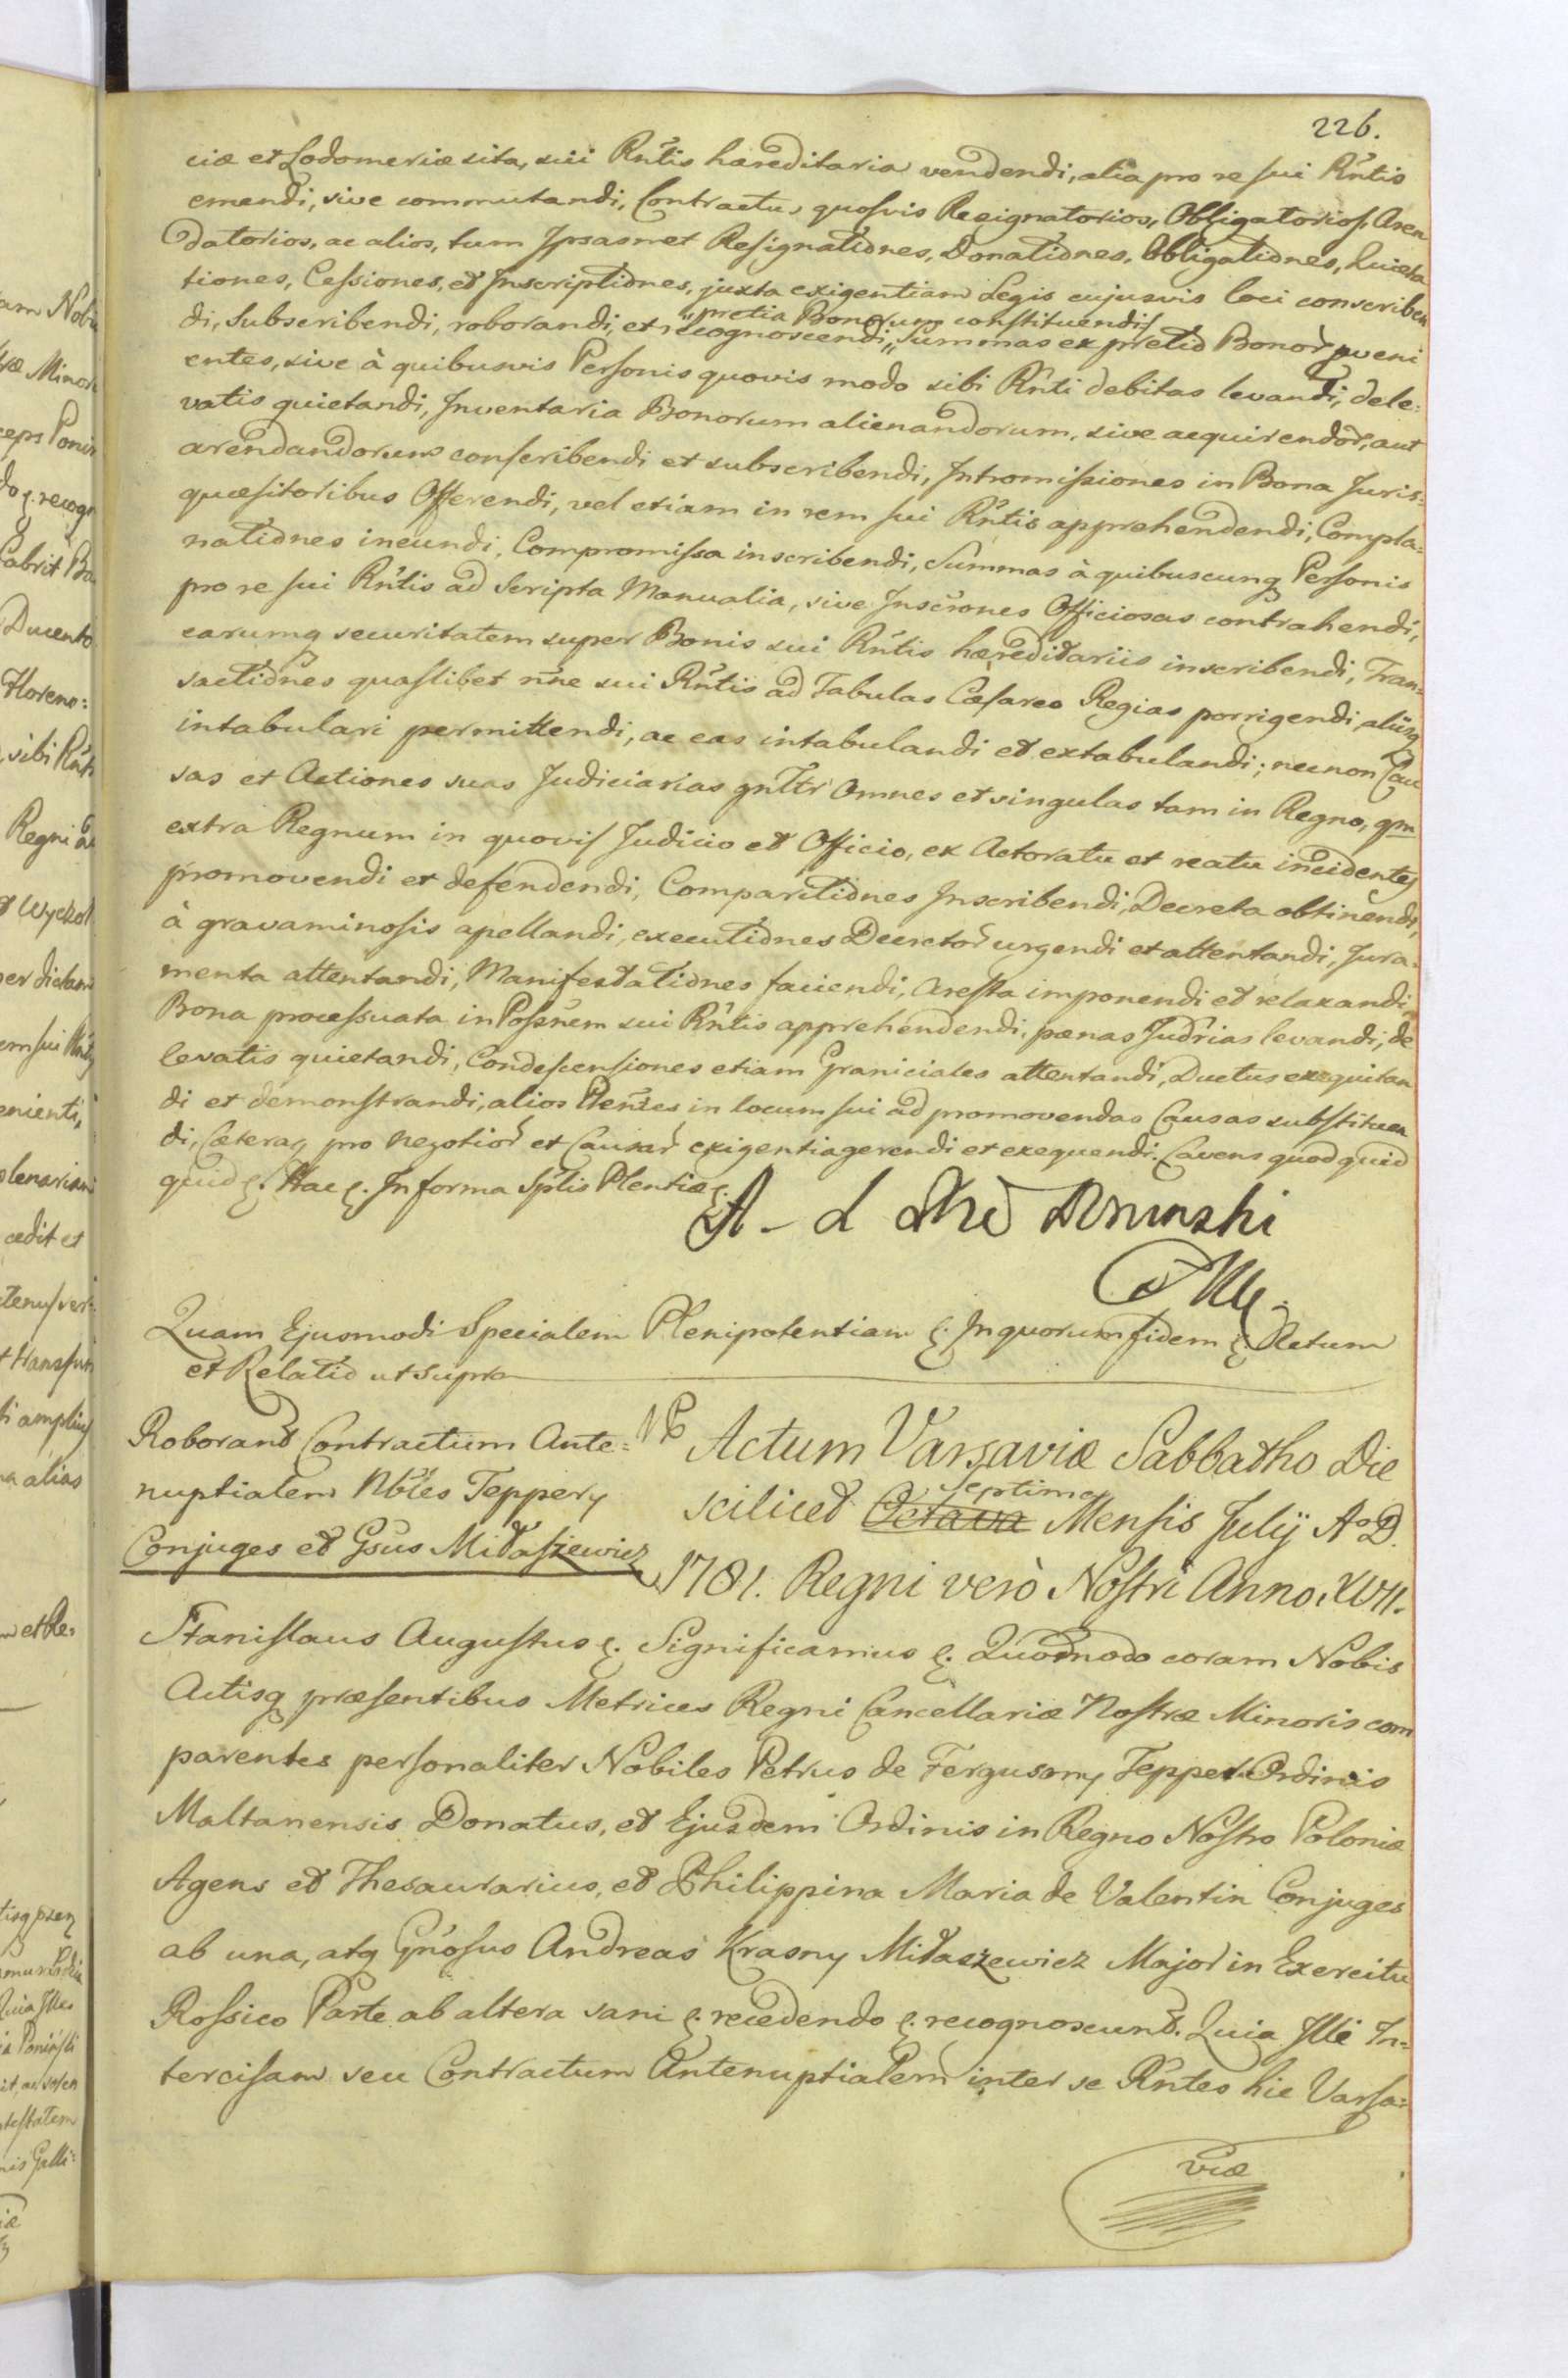 226.
ciæ et Lodomeriæ sita, sui Rntis hæreditaria vendendi, alia pro re sui Rntis
emendi, sive commutandi, Contractus quosvis Resignatorios, Obligatorios, Aren
datorios, ac alios, tum Ipsasmet Resignationes, Donationes, Obligationes, Quieta
tiones, Cessiones, et Inscriptiones, juxta exigentiam Legis cujusvis loci conscriben
pretia Bonorum constituendi
di, subscribendi, roborandi, et recognoscendi, Summas ex pretio Bonor proveni
entes, sive à quibusvis Personis quovis modo sibi Rnti debitas levandi, de le:
vatis quietandi, Inventaria Bonorum alienandorum, sive acquirendor, aut
arendandorum conscribendi et subscribendi, Intromissiones in Bona Juris
quæsitoribus Offerendi, vel etiam in rem sui Rntis apprehendendi, Compla=
nationes ineundi, Compromissa inscribendi, Summas à quibuscunq Personis
pro re sui Rntis ad Scripta Manualia, sive Inscrones Officiosas contrahendi,
earumq securitatem super Bonis sui Rntis hæreditariis inscribendi, Tran=
sactiones quaslibet nne sui Rntis ad Tabulas Cæsareo Regias porrigendi, aliisq
intabulari permittendi, ac eas intabulandi et extabulandi; necnon Cau
sas et Actiones suas Judiciarias gnltr Omnes et singulas tam in Regno, qm
extra Regnum in quovis Judicio et Officio, ex Actoratu et reatu incidentes
promovendi et defendendi, Comparitiones Inscribendi, Decreta obtinendi,
à gravaminosis apellandi, executiones Decretor urgendi et attentandi, Jura=
menta attentandi, Manifestationes faciendi, Aresta imponendi et relaxandi,
Bona processuata in Possnem sui Rntis apprehendendi, pænas Judrias levandi, de
levatis quietandi, Condescensiones etiam Graniciales attentandi, Ductus exequitan
di et demonstrandi, alios Plentes in locum sui ad promovendas Causas substituen
di, Cæteraq pro negotior et Causar exigentia gerendi et exequendi. Cavens quod quid
quid &. Hac &. In forma Splis Plentiæ &.
A
Quam Ejusmodi Specialem Plenipotentiam &. In quorum fidem &. Actum
et Relatio ut supra
Roborand Contractum Ante=
nuptialem Nbles Teppery
Conjuges et Gsus Midaszewicz
Actum Varsaviæ Sabbatho Die
Septima
scilicet Octava Mensis Julij Ao D.
1781. Regni verò Nostri Anno XVII.
Stanislaus Augustus &. Significamus &. Quod modo coram Nobis
Actisq præsentibus Metrices Regni Cancellariæ Nostræ Minoris com
parentes personaliter Nobiles Petrus de Fergusony Tepper Ordinis
Maltanensis Donatus, et Ejusdem Ordinis in Regno Nostro Poloniæ
Agens et Thesaurarius, et Philippina Maria de Valentin Conjuges
ab una, atq Gnosus Andreas Krasny Midaszewicz Major in Exercitu
Rossico Parte ab altera sani &. recedendo &. recognoscunt. Quia Illi In=
tercisam seu Contractum Antenuptialem inter se Rntes hic Varsa=
viæ